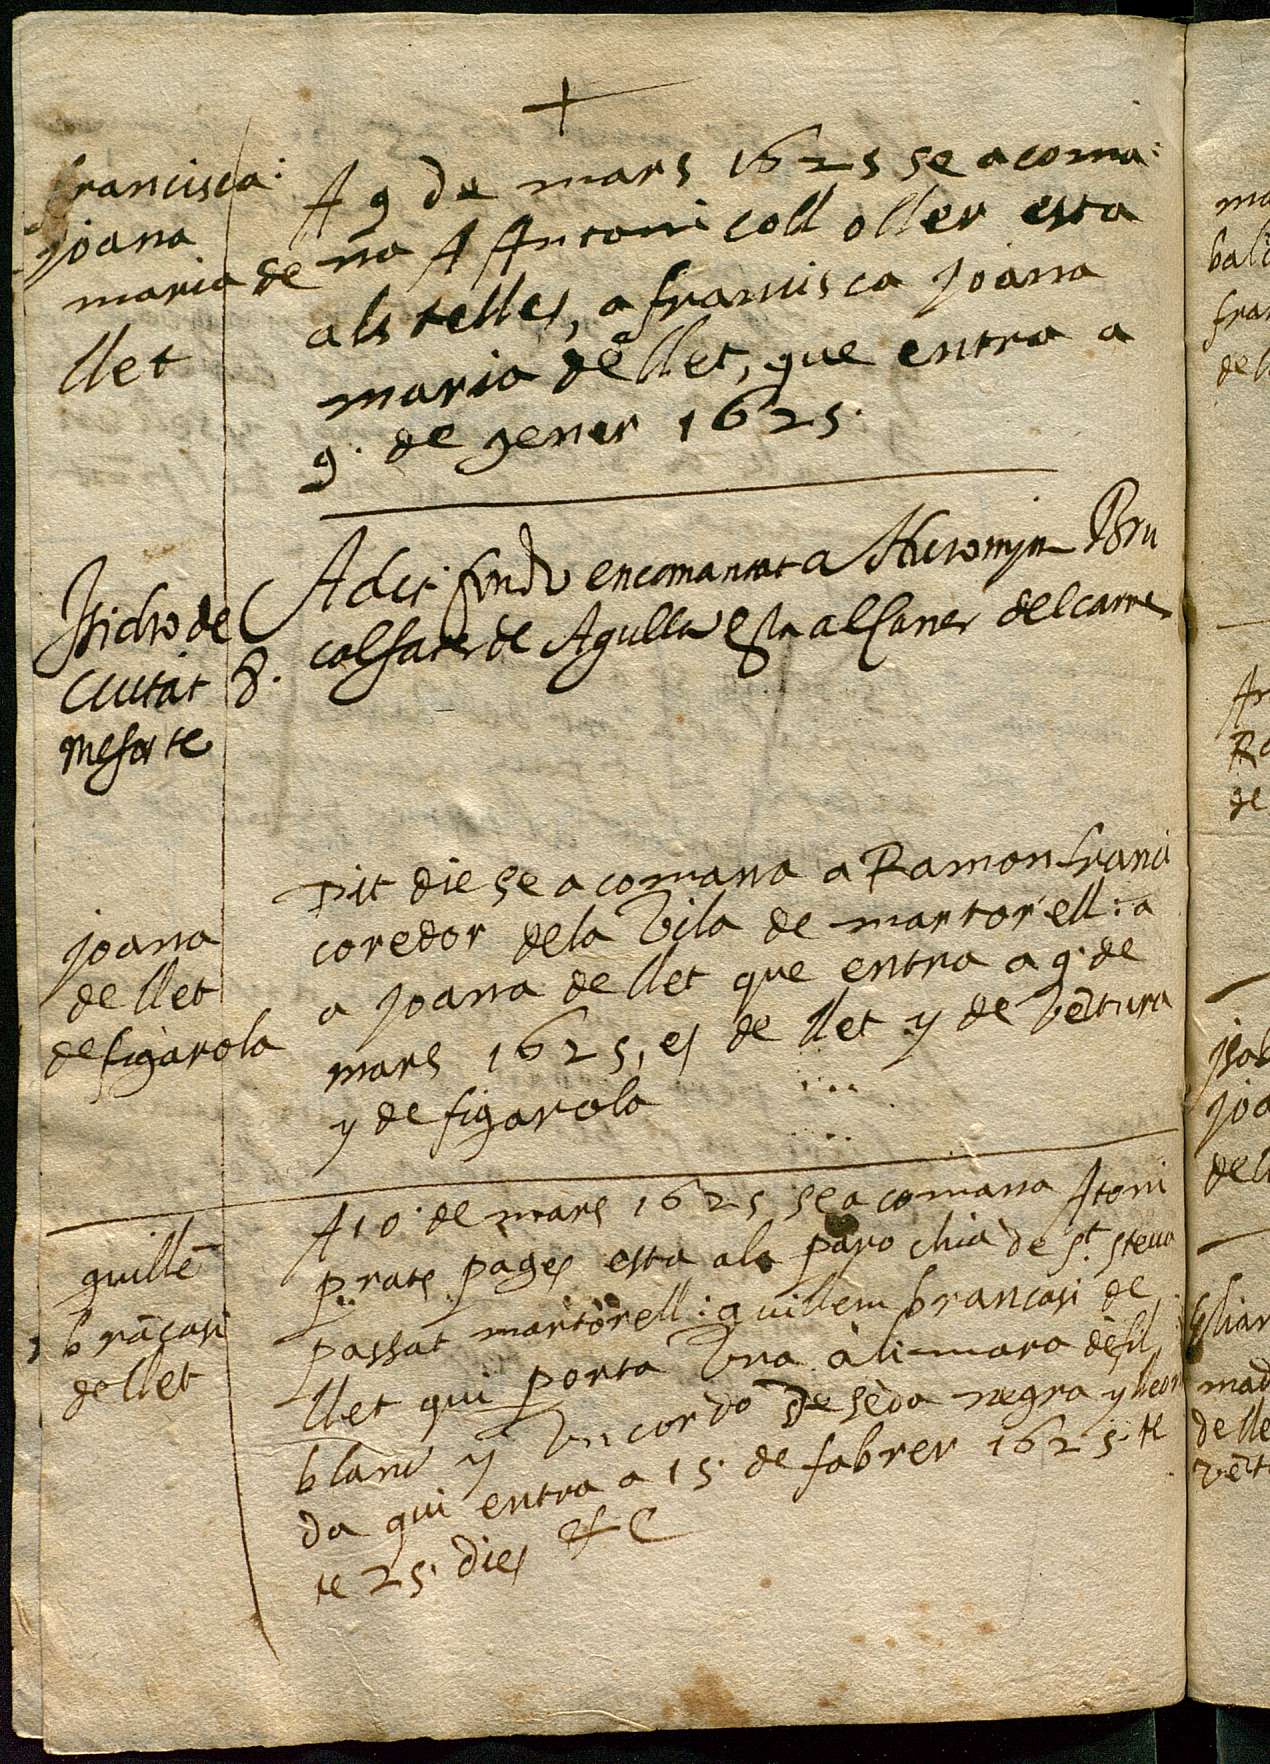 +
francisca:
joana
maria de
llet
A 9 de mars 1625 se acoma:
na A Antoni coll oller esta
als telles, a francisca joana
maria de llet, que entra a
9. de gener 1625.
Isidro de
Ciutat 8.
me for te
A dit encomanat a Hieronym Bru
calsater de Agulla esta al del carre
joana
de llet
de figarola
Dit die se acomana a Ramon franci
coredor dela vila de martorell: a
a joana de llet que entra a 9. de
mars 1625, es de llet y de vētura
y de figarola
guillē
brācasi
de llet
A 10. de mars 1625 se acomana Atoni
prats pages esta ala parochia de st. steva
passat martorell: guillem brancasi de
llet qui porta una alimara de fil
blanc y un cordo de seda negra y lleon
da qui entra a 15. de fabrer 1625. te
te 25. dies &c